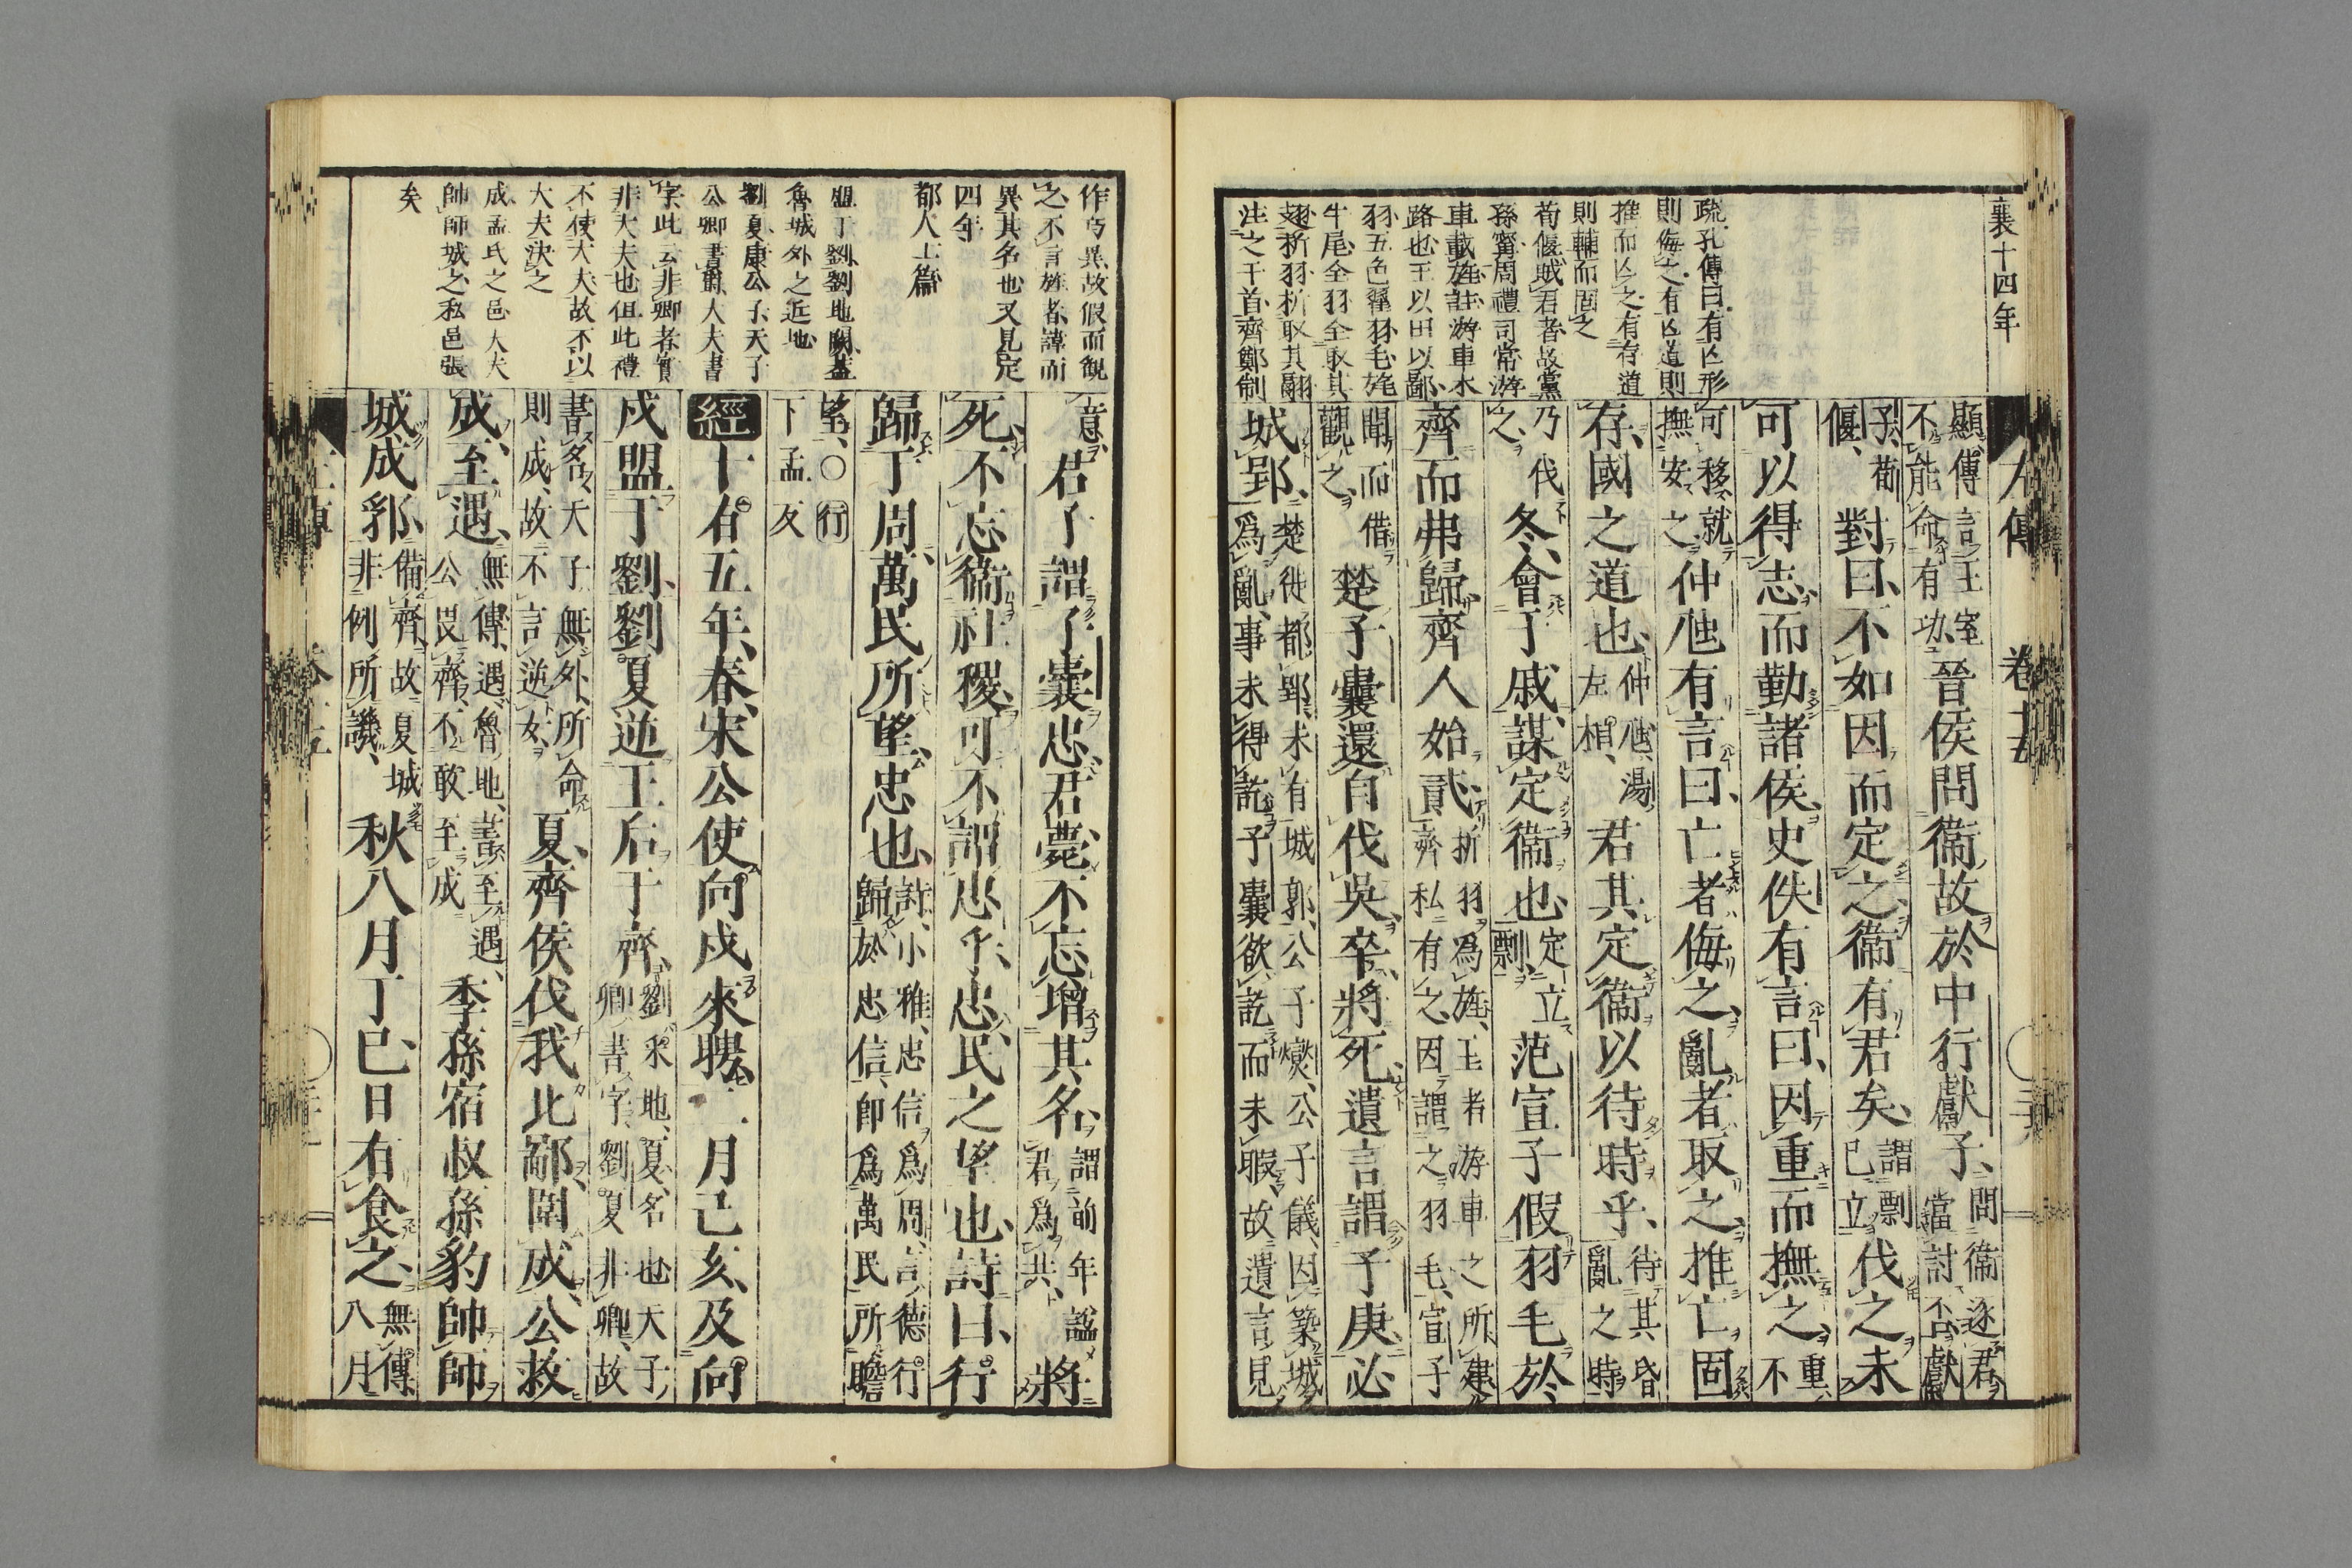 襄十四年
疏孔傳曰有亡形
則侮之有亡道則
推而亡之有存道
則輔而固之
荀偃賊君者故黨
孫甯周禮司常游
車載旌註游車木
路也王以田以鄙
羽五色翟羽毛旄
牛尾全羽全取其
翅析羽析取其翮
注之干首齊鄭制
左傳 卷十五
顯傳言王室
不能命有功
晉侯問衞故於中行獻子
問衞逐君
當討否獻
子荀
偃
對曰不如因而定之衞有君矣
謂剽
已立
伐之未
可以得志而勤諸侯史佚有言曰因重而撫之
重不
可移就
撫安之
仲虺有言曰亡者侮之亂者取之推亡固
存國之道也
仲虺湯
左相
君其定衞以待時乎
待其昏
亂之時
乃伐
之
冬會于戚謀定衞也
定立
剽
范宣子假羽毛於
齊而弗歸齊人始貳
析羽爲旌王者游車之所建
齊私有之因謂之羽毛宣子
聞而借
觀之
楚子囊還自伐吳卒將死遺言謂子庚必
城郢
楚徙都郢未有城郭公子燮公子儀因築城
爲亂事未得訖子囊欲訖而未暇故遺言見
作旄異故假而観
之不言旌者諱而
異其名也又見定
四年
都人士篇
盟于劉劉地闕蓋
魯城外之近地
劉夏康公子天子
公卿書爵大夫書
字此云非卿者實
非大夫也但此禮
不使大夫故不以
大夫決之
成孟氏之邑大夫
帥師城之私邑張
矣
意
君子謂子囊忠君薨不忘增其名
謂前年謚
君爲共
將
死不忘衞社稷可不謂忠乎忠民之望也詩曰行
歸于周萬民所望忠也
詩小雅忠信爲周言德行
歸於忠信卽爲萬民所瞻
望○行
下孟反
經十有五年春宋公使向戌來聘二月己亥及向
戌盟于劉劉夏逆王后于齊
劉采地夏名也天子
卿書字劉夏非卿故
書名天子無外所命
則成故不言逆女
夏齊侯伐我北鄙圍成公救
成至遇
無傳遇魯地書至遇
公畏齊不敢至成
季孫宿叔孫豹帥師
城成郛
備齊故夏城
非例所譏
秋八月丁巳日有食之
無傳
八月